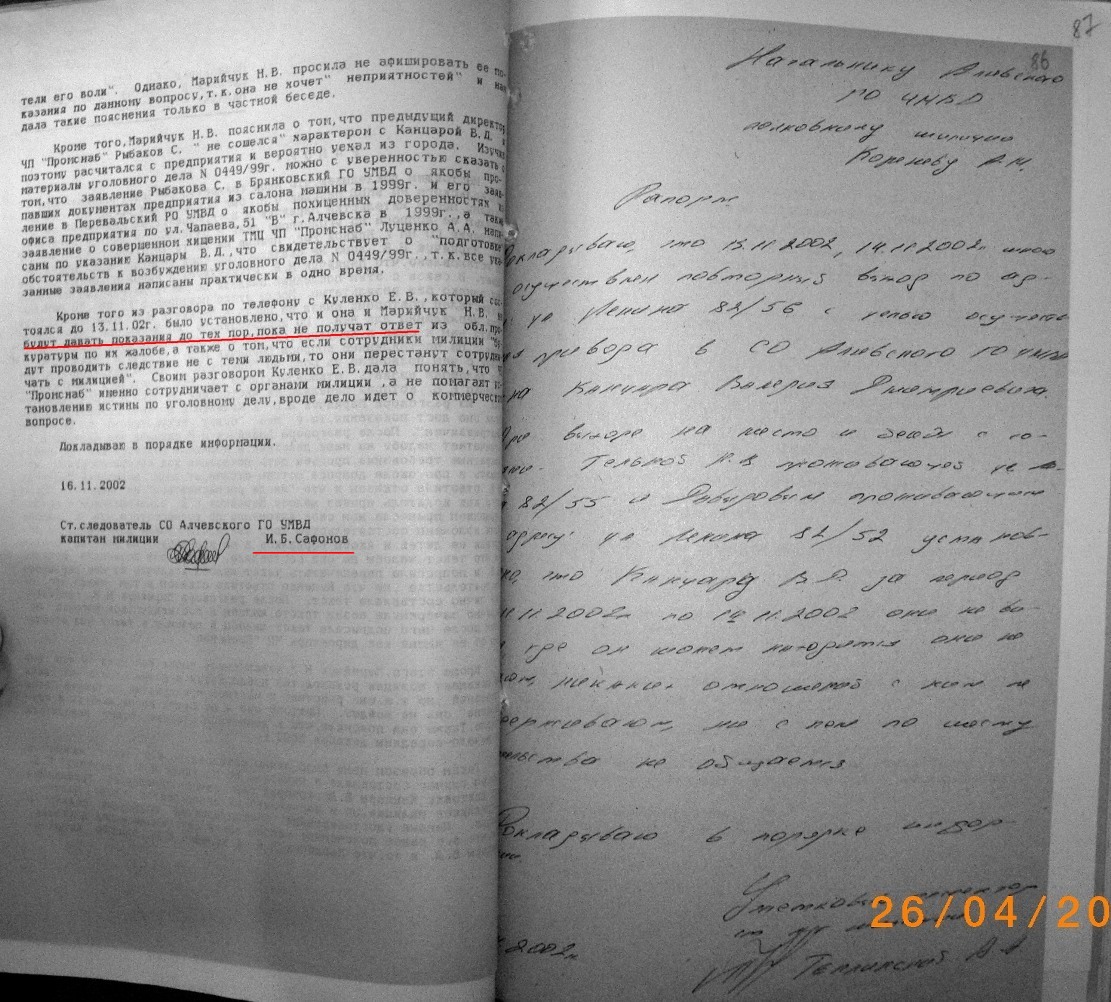 тели его воли". Однако, Марийчук Н.В. просила не афишировать ее по-
казания по данному вопросу,т.к.она не хочет" неприятностей" и
дала такие пояснения только в частной беседе.
Кроме того,Марийчук Н.В. пояснила о том,что предыдущий директор
ЧП "Промснаб" Рыбаков С. " не сошелся" характером с Канцарой В.Д.,
поэтому расчитался с предприятия и вероятно уехал из города. Изучив
материалы уголовного дела N 0449/99г. можно с уверенностью сказать о
том,что заявление Рыбакова С. в Брянковский ГО УМВД о якобы про-
павших документах предприятия из салона машины в 1999г. и его заяв-
ление в Перевальский РО УМВД о якобы похищенных доверенностях из
офиса предприятия по ул.Чапаева,51 "В" г.Алчевска в 1999г.,а также
заявление о совершенном хищении ТМЦ ЧП "Промснаб" Луценко А.А. напи-
саны по указанию Канцары В.Д.,что свидетельствует о "подготовке"
обстоятельств к возбуждению уголовного дела N 0449/99г.,т.к.все ука-
занные заявления написаны практически в одно время.
Кроме того из разговора по телефону с Куленко Е.В.,который сос-
тоялся до 13.11.02г. было установлено,что и она и Марийчук Н.В. не
будут давать показания до тех пор,пока не получат ответ из обл.про-
куратуры по их жалобе,а также о том,что если сотрудники милиции "бу-
дут проводить следствие не с теми людьми,то они перестанут сотрудни-
чать с милицией". Своим разговором Куленко Е.В.дала понять,что ЧП
"Промснаб" именно сотрудничает с органами милиции ,а не помогают ус-
тановлению истины по уголовному делу,вроде дело идет о коммерческом
вопросе.
Докладываю в порядке информации.
16.11.2002
Ст.следователь СО Алчевского ГО УМВД
капитан милиции И.Б.Сафонов
87
86
Начальнику Алчевского
ГО УМВД
полковнику милиции
Кореневу А.Н.
Рапорт
Докладываю, что 13.11.2002, 14.11.2002г мною
осуществлен повторный выход по ад-
ул Ленина 82/56 с целью
привода в СО Алчевского ГО УМВД
Канцара Валерия Дмитриевича.
При выходе на место и беседе с со-
82/55 и проживающим
адресу: ул Ленина 82/52 установ-
что Канцара В.Д. за период
11.2002г по 14.11.2002 они не ви-
где он может находится они не
никаких отношений с ним не
ни с кем по месту
не общается
Докладываю в порядке инфор-
Участковый инспектор
2002г
26/04/20